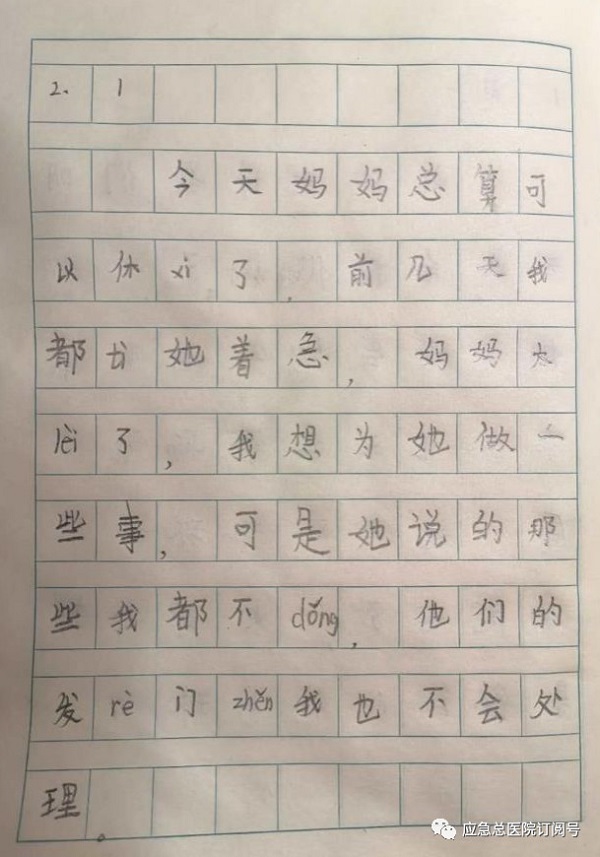 2. 1
今天妈妈总算可
以休xi了，前几天我
都ti她着急，妈妈太
lèi了，我想为她做一
些事，可是她说的那
些我都不dǒng，他们的
发rè门zhěn我也不会处
理。
应急总医院订阅号